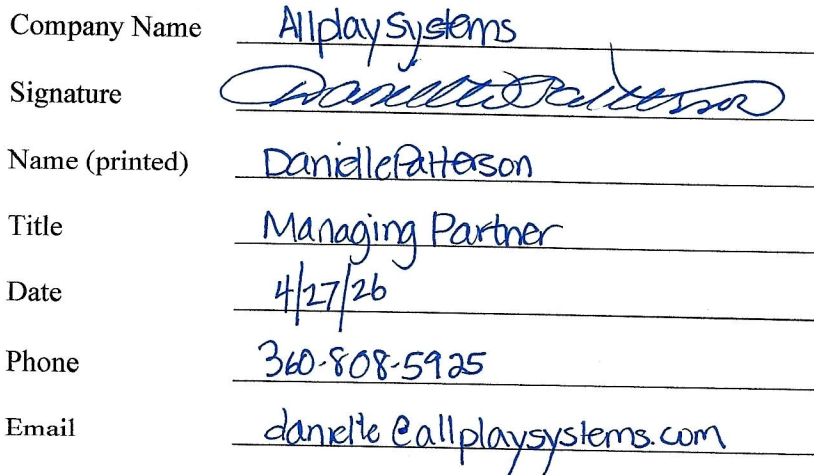 Company Name Allplay Systems
Signature Danielle Patterson
Name (printed) Danielle Patterson
Title Managing Partner
Date 4/27/26
Phone 360-808-5925
Email danielle@allplaysystems.com